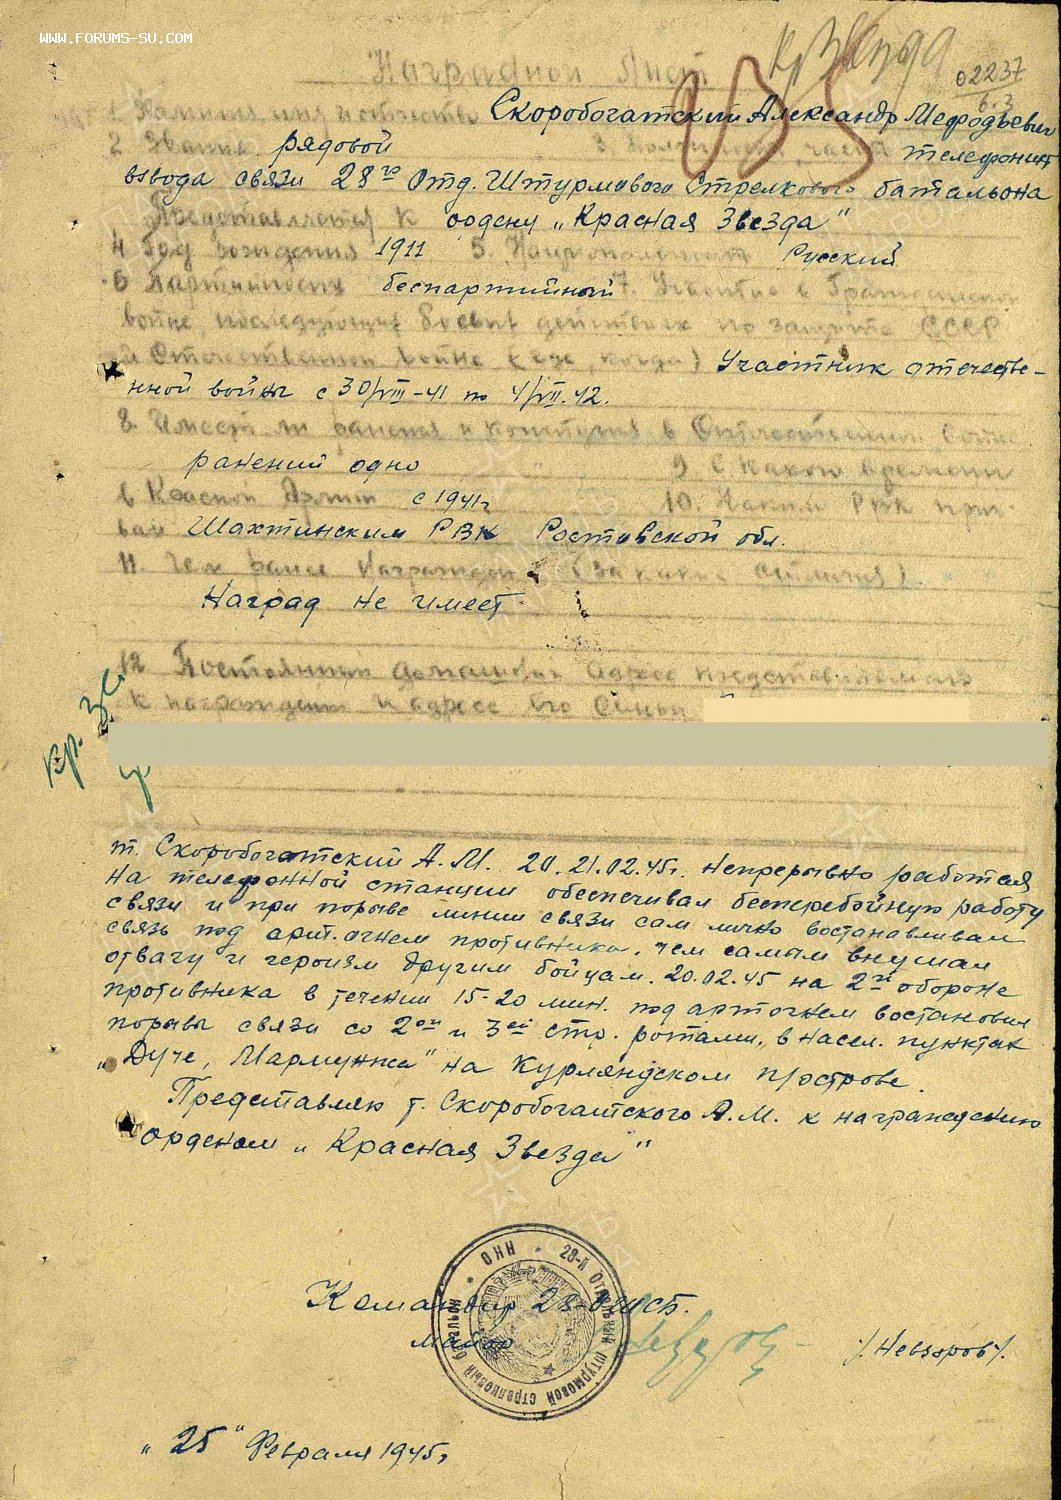 WWW.FORUMS-SU.COM
Кр Звезда
02237
6.3
Наградной Лист
1 Фамилия, имя и отчество Скоробогатский Александр Мефодьевич
2 Звание рядовой 3. Должность, часть телефонист
взвода связи 28го Отд. Штурмового Стрелкового батальона
Представляется к ордену „Красная Звезда"
4 Год рождения 1911 5. Национальность Русский
6 Партийность беспартийный 7. Участие в Гражданской
войне, последующих боевых действиях по защите СССР
и Отечественной войне (где, когда) Участник отечестве-
нной войны с 30/VIII-41 по 4/VII.42.
8 Имеет ли ранения и контузия в Отечественной войне
ранений одно 9 С какого времени
в Красной Армии с 1941г 10. Каким РВК приз-
ван Шахтинским РВК Ростовской обл.
11. Чем ранее награжден (за какие отличия).
Наград не имеет
12 Постоянный домашний адрес представляемого
к награждению и адрес его семьи
кр. Зв.
т. Скоробогатский А.М. 20.21.02.45г. непрерывно работая
на телефонной станции обеспечивал бесперебойную работу
связи и при порыве линии связи сам лично востанавливал
связь под арт.огнем противника, чем самым внушал
отвагу и героизм другим бойцам. 20.02.45 на 2ой обороне
противника в течении 15-20 мин. под артогнем востановил
порывы связи со 2ой и 3ей стр. ротами, в насел. пунктах
„Дуче, Мармужа" на Курляндском п/острове.
Представляю т. Скоробогатского А.М. к награждению
орденом „Красная Звезда"
28-й Отдельный штурмовой стрелковый батальон * ОНН *
Командир 28-ОШСБ.
майор Невзоров /Невзоров/.
„25" Февраля 1945г